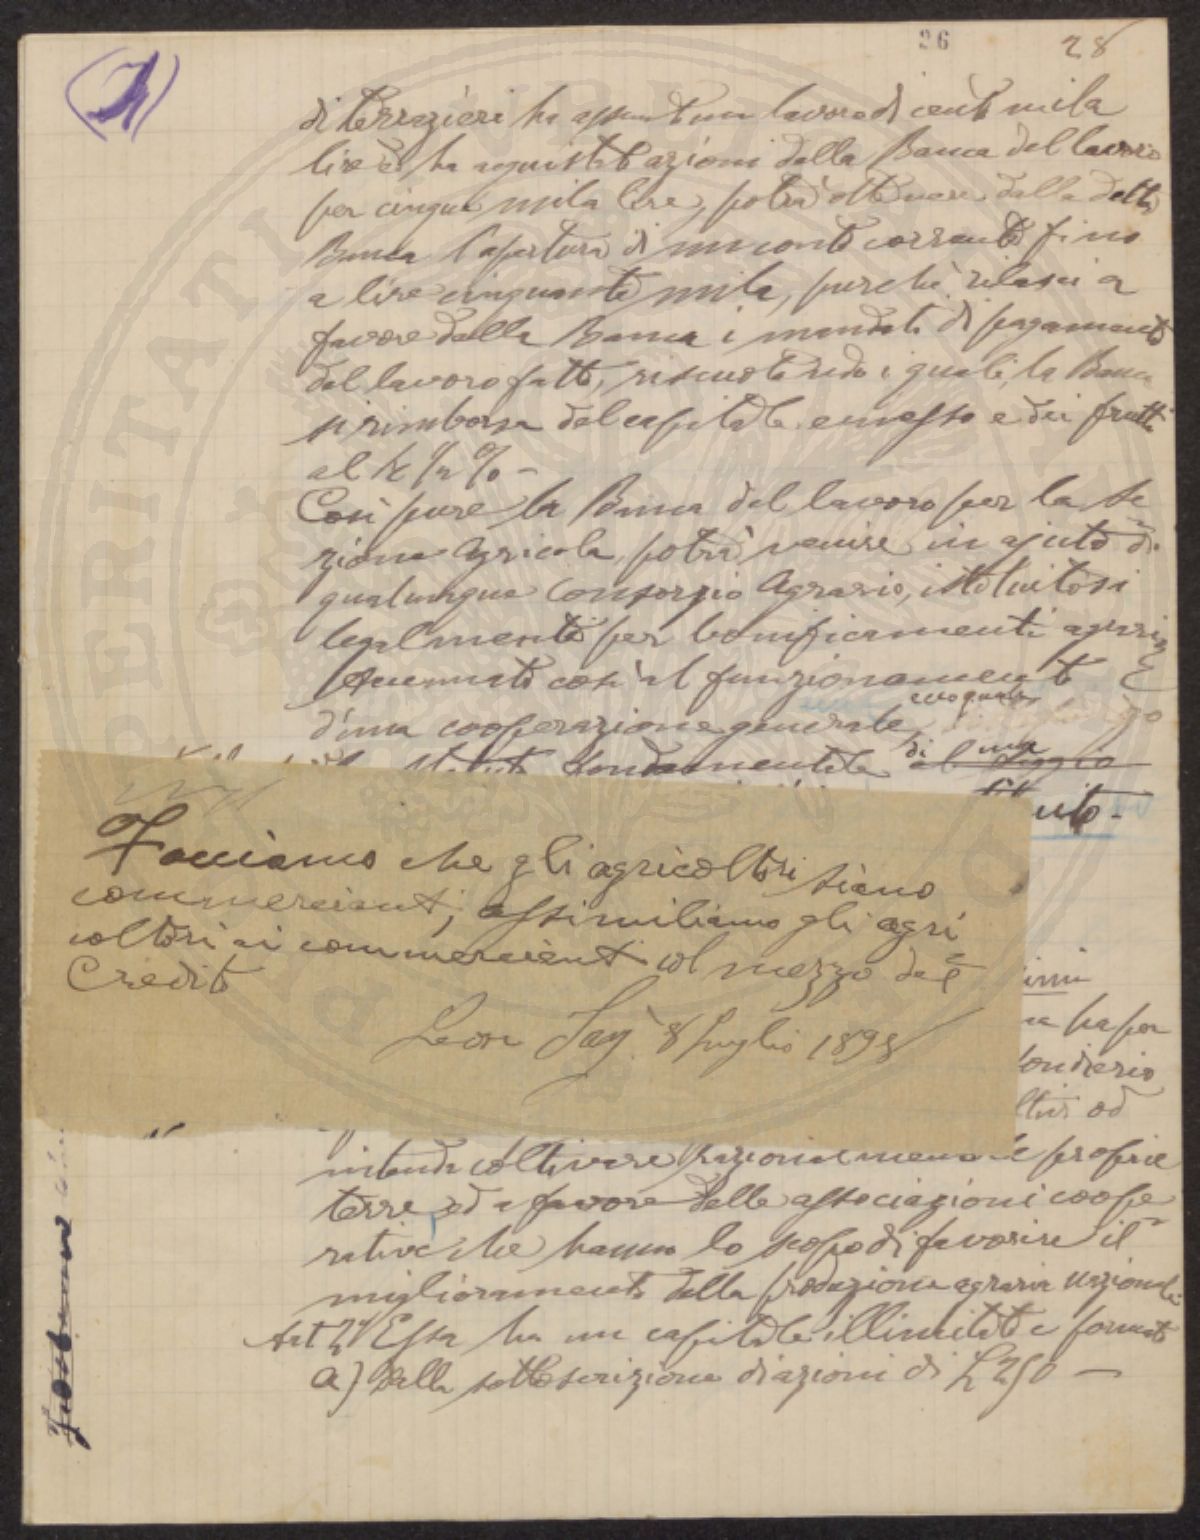 26 28
di terrazieri ha assunto un lavoro di cento mila
lire e ha acquistato azioni della Banca del lavoro
per cinque mila lire, potrà ottenere dalla detta
Banca l'apertura di un conto corrente fino
a lire cinquanta mila, purchè rilasci a
favore della Banca i mandati di pagamento
del lavoro fatto, riscuotendo i quali, la Banca
si rimborsa del capitale emesso e dei frutti
al 4 1/2 % -
Così pure la Banca del lavoro per la se
zione Agricola potrà venire in ajuto di
qualunque Consorzio Agrario, istituitosi
legalmente per bonificamenti agrari
Accennato così al funzionamento
d'una cooperazione generale
statuto fondamentale di una
uto -
Facciamo che gli agricoltori siano
commercianti; assimiliamo gli agri
coltori ai commercianti col mezzo del
Credito
Leon Say 8 Luglio 1898
ha per
fondiario
od
intenda coltivare razionalmente le proprie
terre, ed a favore delle associazioni coope
rative che hanno lo scopo di favorire il
miglioramento della produzione agraria nazionale
Art 2° Essa ha un capitale illimitato e formato
a) Dalla sottoscrizione di azioni di L 250 -